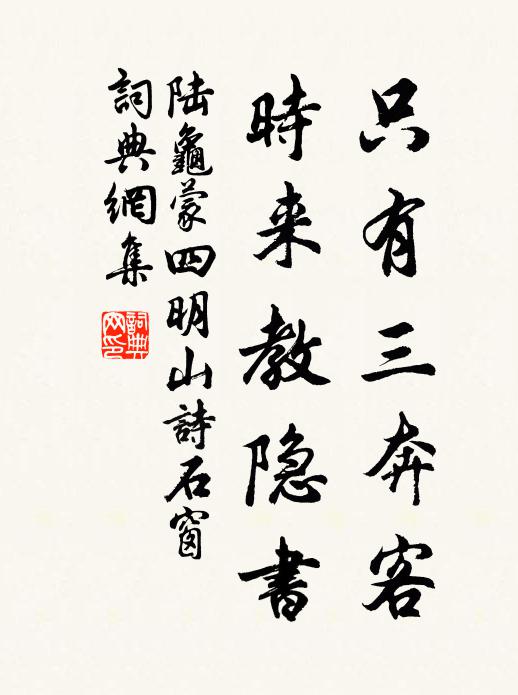 只有三奔客
時来教隐書
陆龜蒙四明山詩石窗
詞典網集
詞典网印